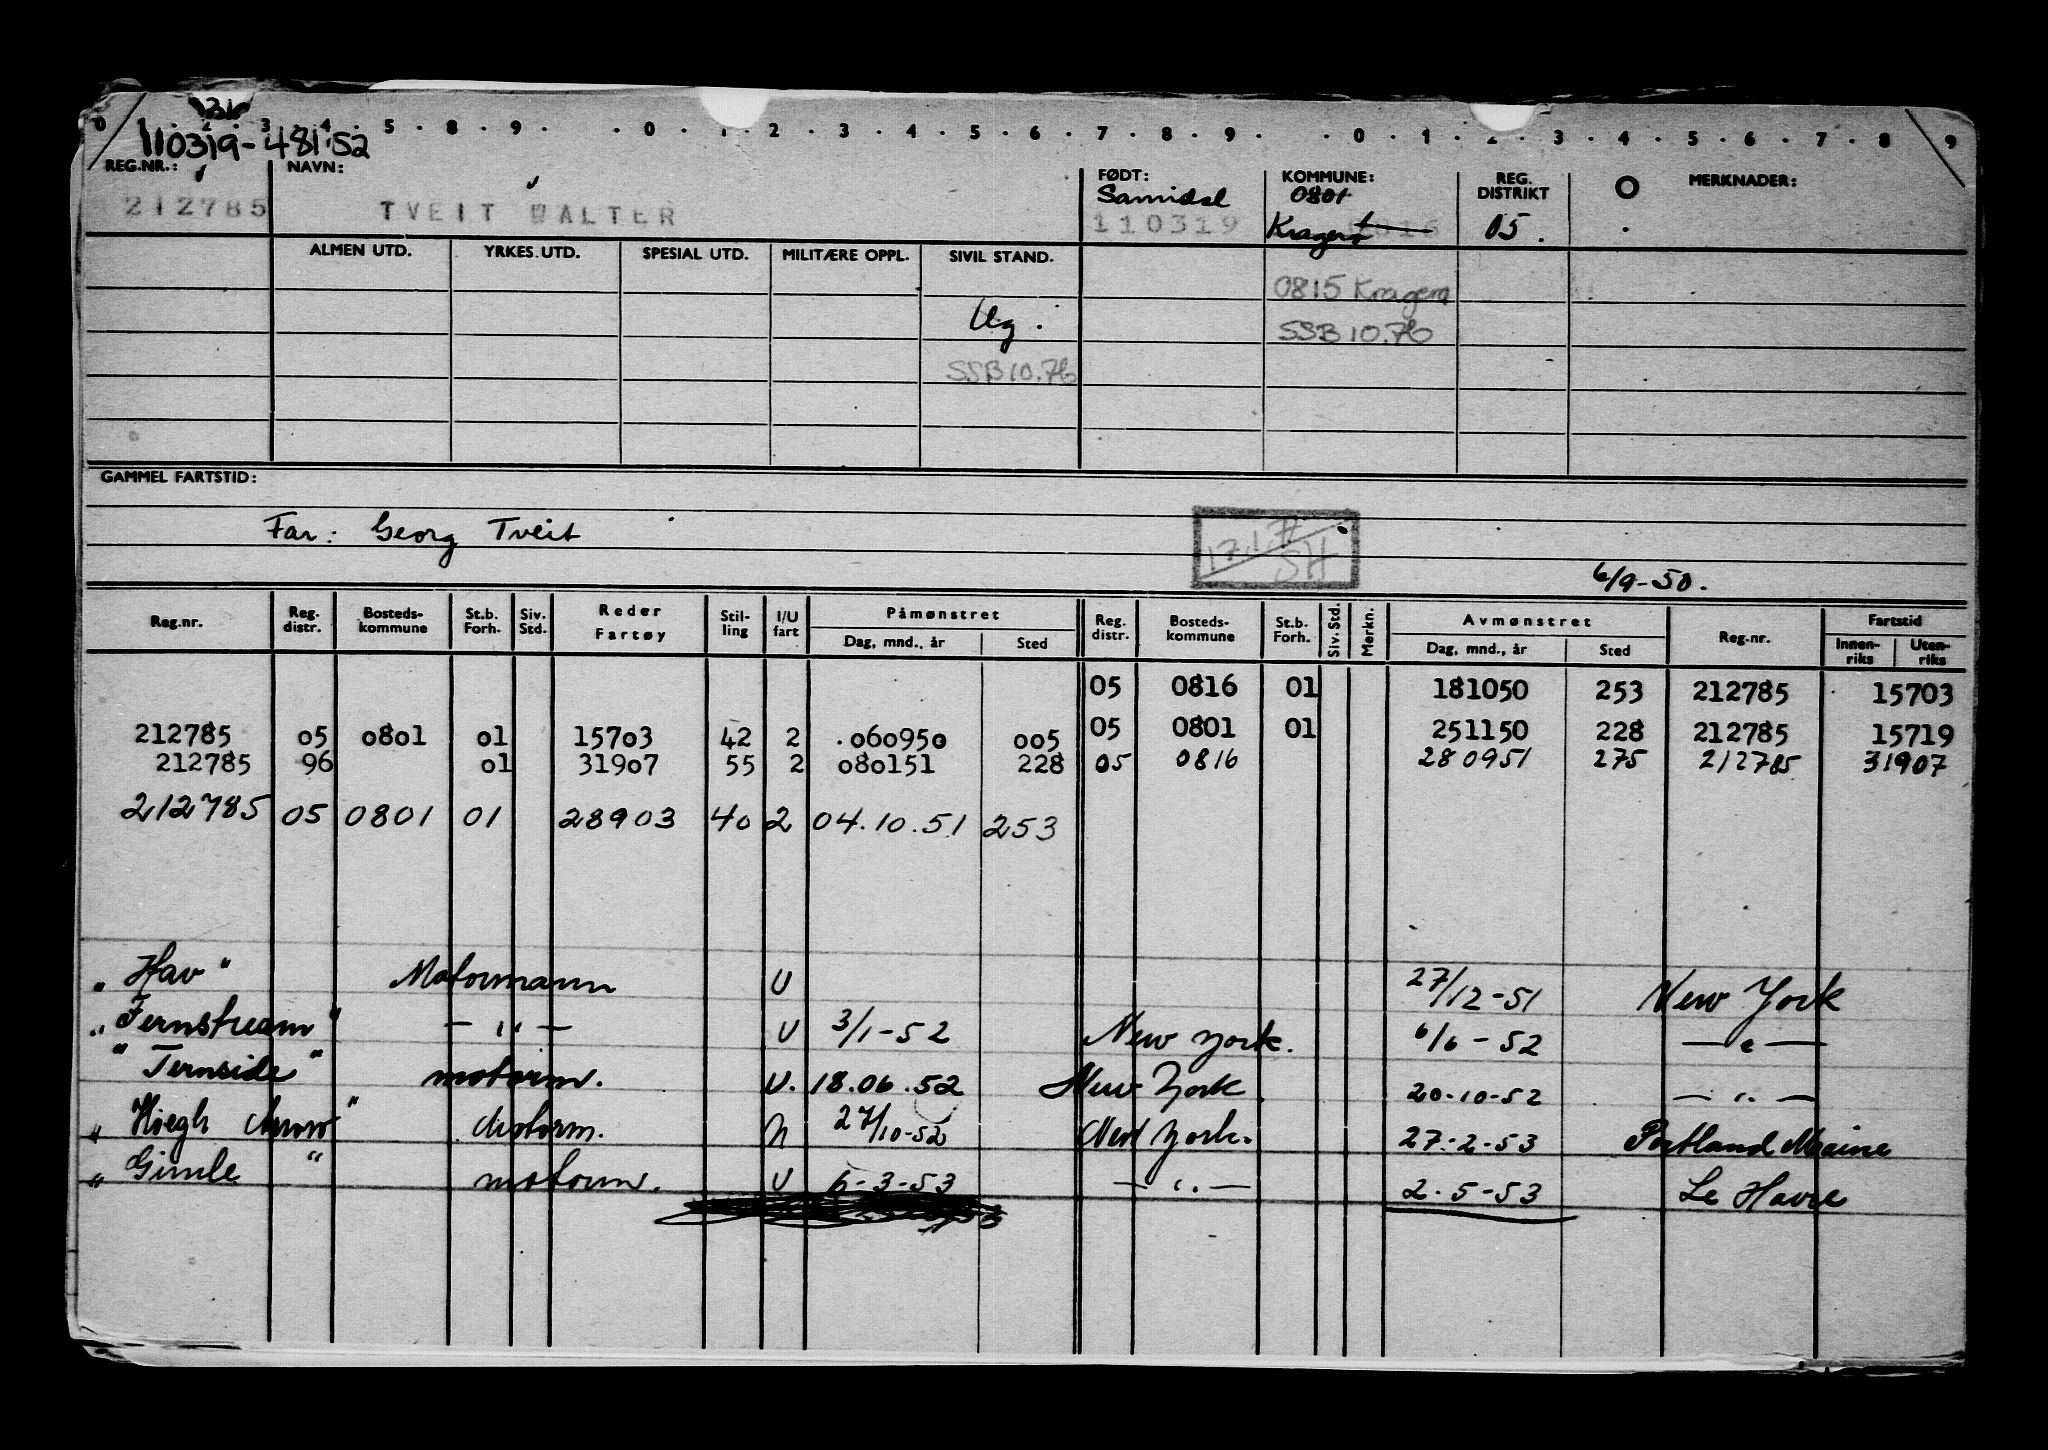 0 . 1 . 2 . 3 . 4 . 5 . 8 . 9 . . 0 . 1 . 2 . 3 . 4 . 5 . 6 . 7 . 8 . 9 . . 0 . 1 . 2 . 3 . 4 . 5 . 6 . 7 . 8 . 9
110319-48152
REG.NR.: NAVN: FØDT: KOMMUNE: REG. DISTRIKT MERKNADER:
Sannidal 0801
212785 TVEIT WALTER 110319 Kragerø 0816 05.
ALMEN UTD. YRKES. UTD. SPESIAL UTD. MILITÆRE OPPL. SIVIL STAND.
0815 Kragerø
Ug. SSB 10.76
SSB 10.76
GAMMEL FARTSTID:
Far: Georg Tveit
17.1.77 SH
6/9-50.
Reg.nr. Reg. distr. Bosteds- kommune St.b. Forh. Siv. Std. Reder Fartøy Stil- ling I/U fart Påmønstret Dag, mnd., år Sted Reg. distr. Bosteds- kommune St.b. Forh. Siv. Std. Merkn. Avmønstret Dag, mnd., år Sted Reg.nr. Fartstid Innen- riks Uten- riks
05 0816 01 181050 253 212785 15703
212785 05 0801 01 15703 42 2 .060950 005 05 0801 01 251150 228 212785 15719
212785 96 01 31907 55 2 080151 228 05 0816 280951 275 212785 31907
212785 05 0801 01 28903 40 2 04.10.51 253
"Hav" Motormann U 27/12-51 New York
"Fernstream" - " - U 3/1-52 New York. 6/6-52 - " -
"Ternside" motorm. U. 18.06.52 New York 20-10-52 - " -
"Höegh Arrow" Motorm. U 27/10-52 New York. 27-2-53 Portland Maine
"Gimle" motorm. U 6-3-53 - " - 2-5-53 Le Havre